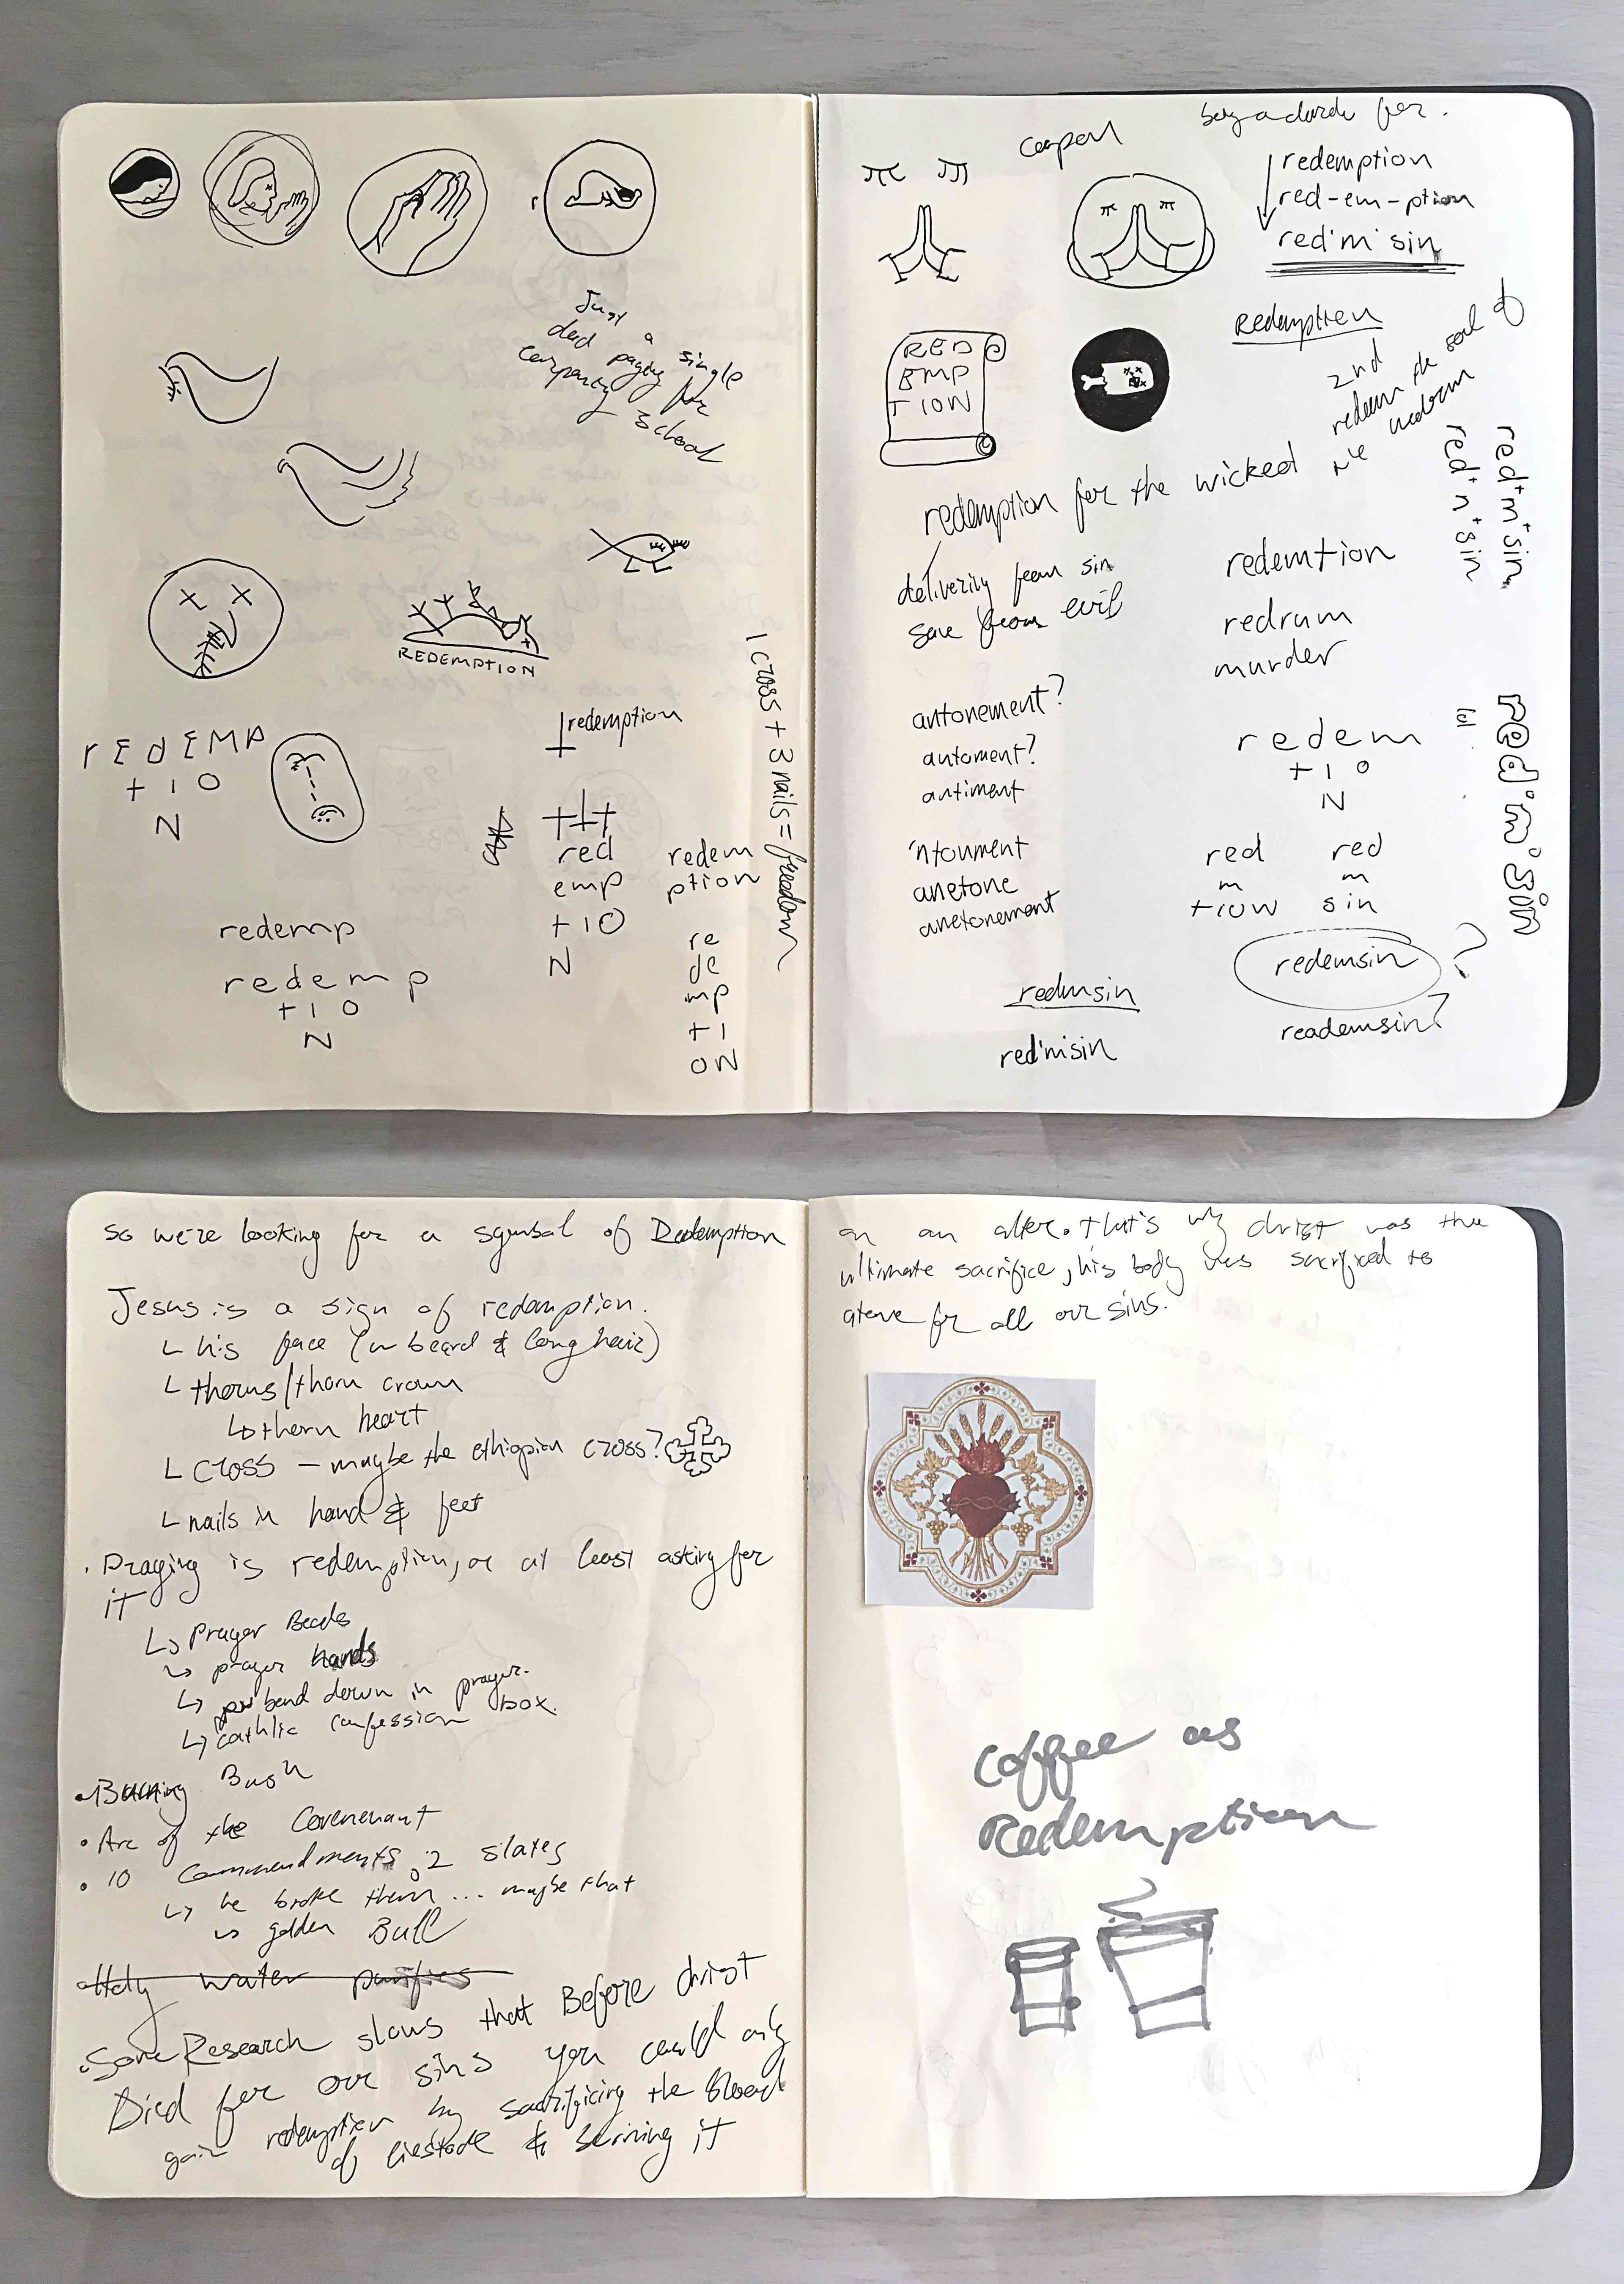 Just a single
dad paying for
company
school
REDEMPTION
1 cross + 3 nails = freedom
redemption
rEdEMP
t I O
N
red
emp
tIO
N
redem
ption
re
de
mp
tI
ON
redemp
redemp
t I O
N
for.
redemption
red-em-ption
red'm'sin
Redemption
2nd
redeem the soul of
RED
EMP
TION
redemption for the wicked
delivering from sin
save from evil
red+m+sin
red+n+sin
redemtion
redrum
murder
antonement?
automent?
antiment
'ntoument
anetone
anetonement
redem
t I O
N
lol
red'm'sin
red
m
tion
red
m
sin
redemsin ?
readem sin?
redmsin
red'm'sin
So we're looking for a symbol of Redemption
Jesus is a sign of redemption.
his face (w beard & long hair)
thorns/thorn crown
thorn heart
cross – maybe the ethiopian cross?
nails in hand & feet
Praying is redemption, or at least asking for
it
Prayer Beads
prayer hands
bend down in prayer.
cathlic confession box.
Burning Bush
Arc of the Covenenant
10 Commendments, 2 slates
he broke them... maybe that
golden Bull
Holy water purifies
Some Research shows that Before christ
Died for our sins you could only
gain redemption by sacrificing the blood
of livestock & burning it
on an alter. that's why christ was the
ultimate sacrifice, his body was sacrificed to
atone for all our sins.
Coffee as
Redemption